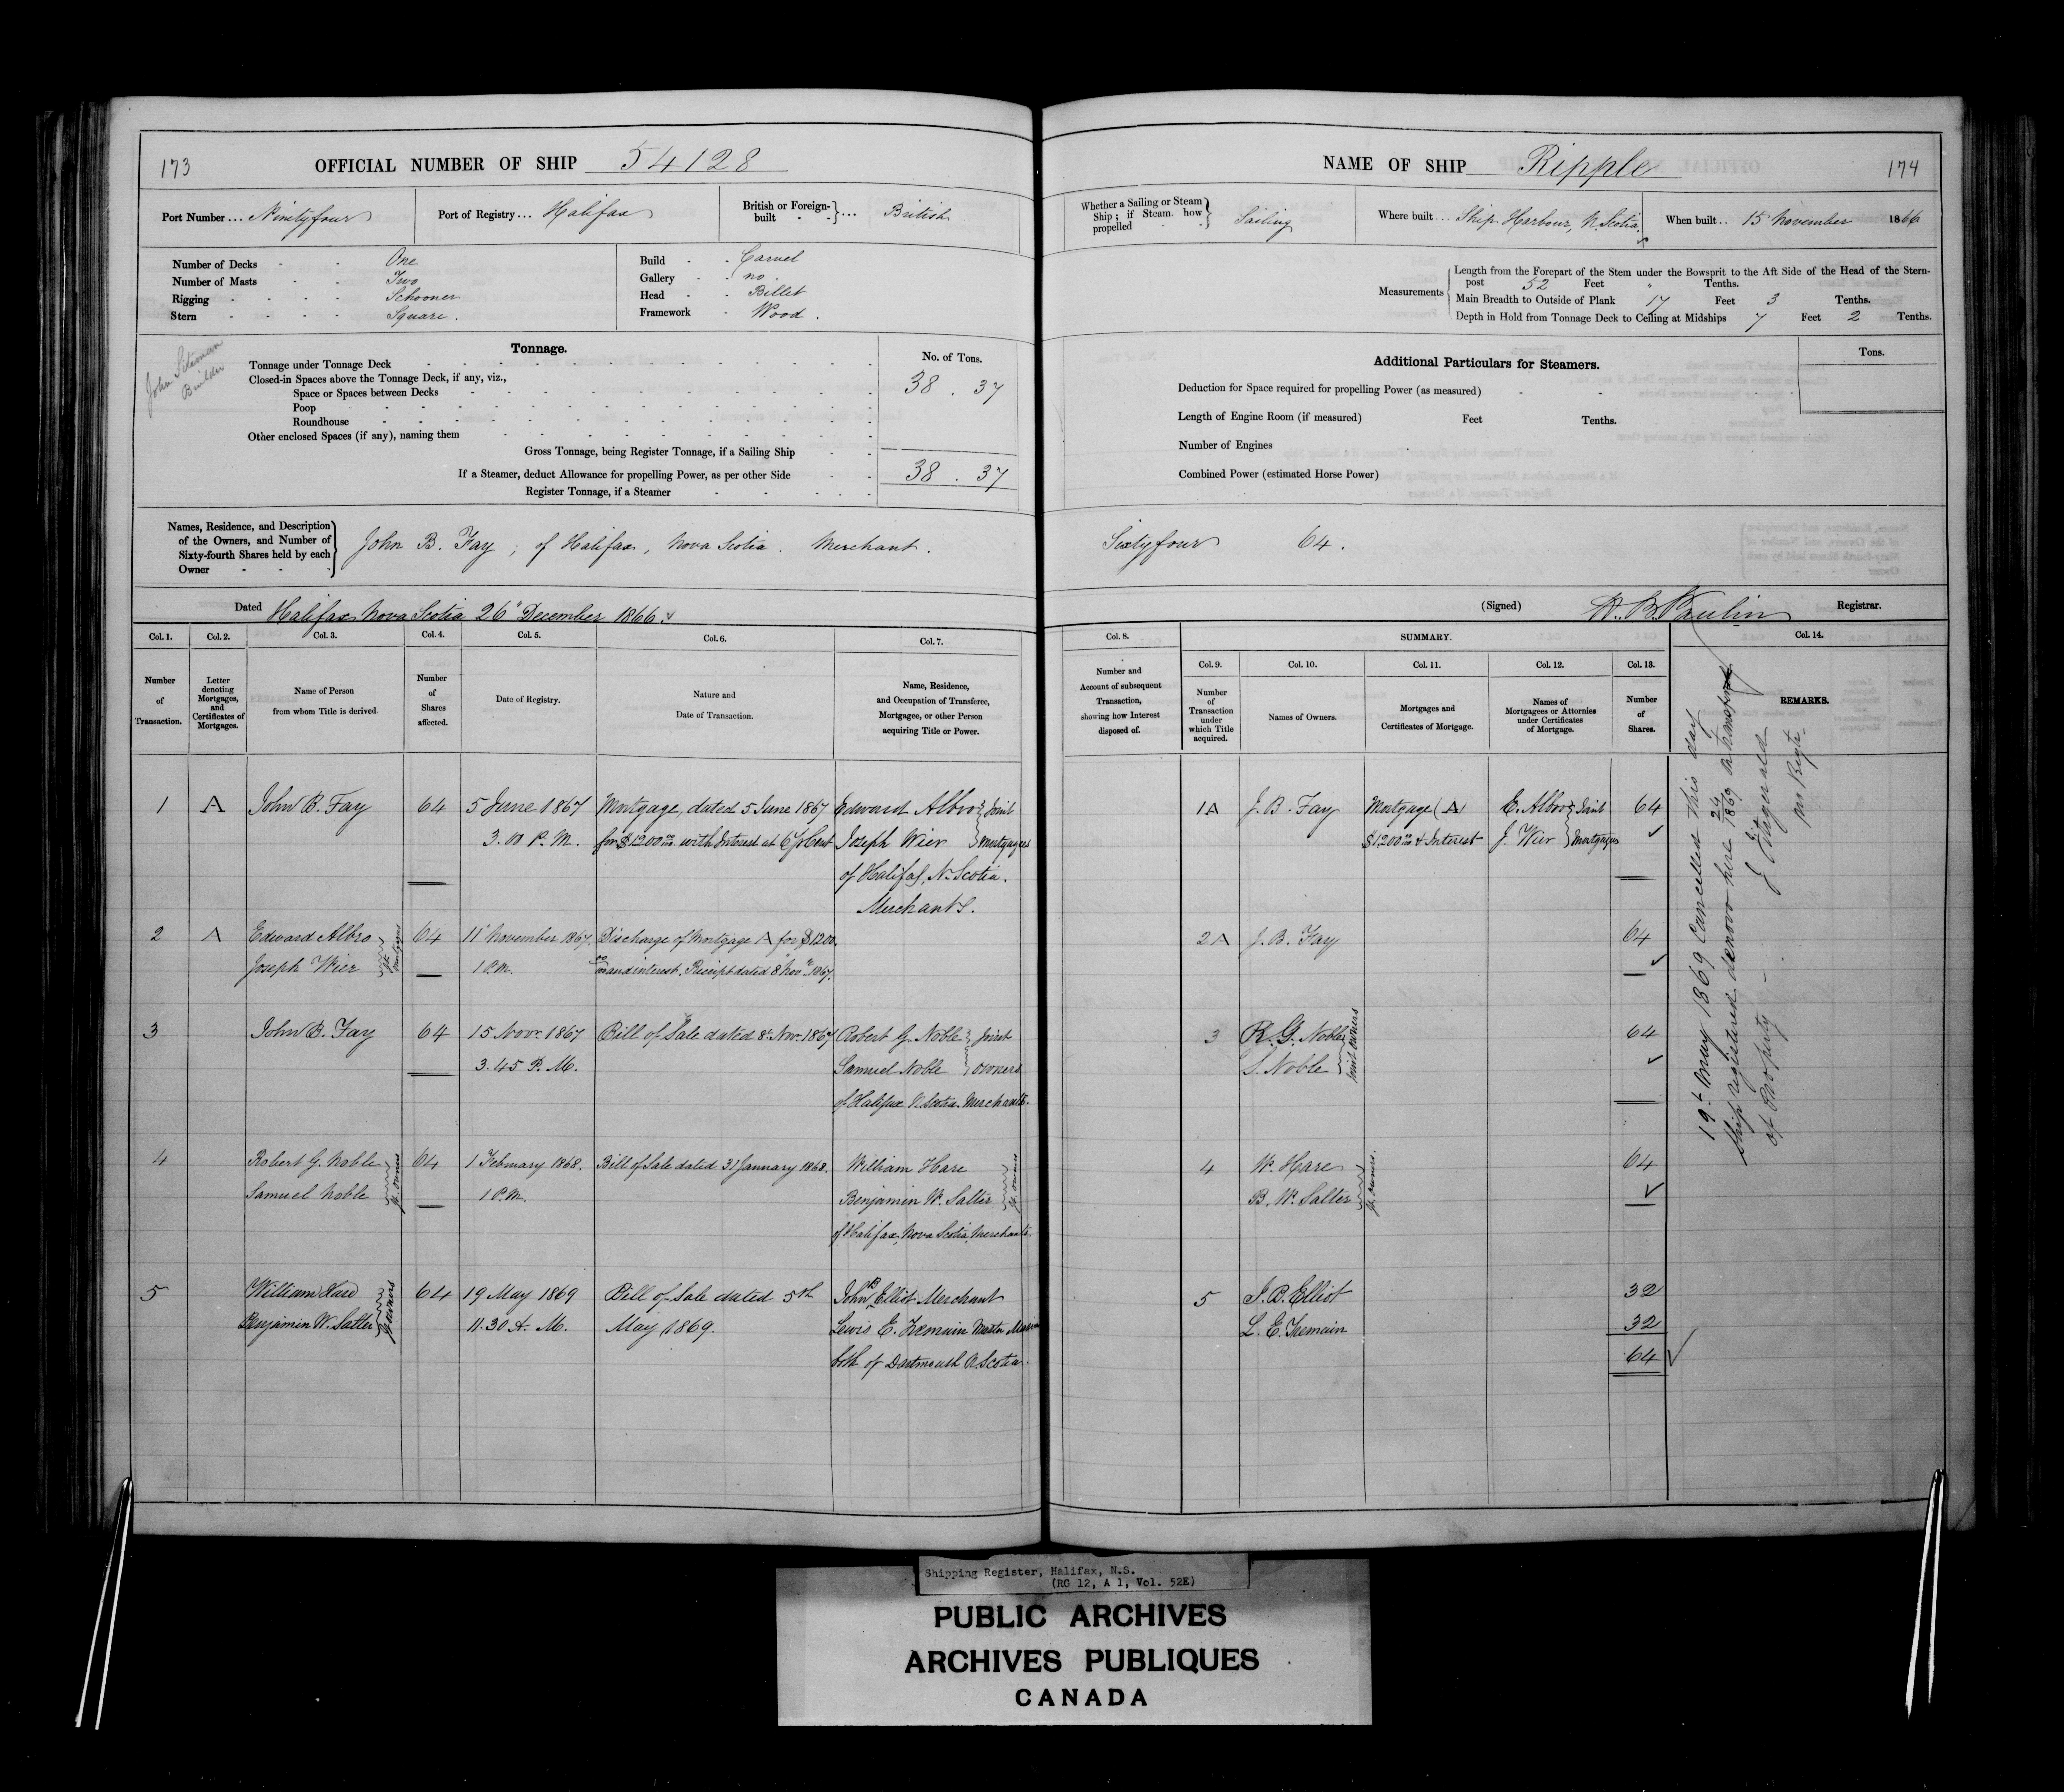 173
OFFICIAL NUMBER OF SHIP 54128
Port Number ... Ninetyfour
Port of Registry ... Halifax
British or Foreign-built } ... British
Number of Decks - - One
Number of Masts - - Two
Rigging - - - - Schooner
Stern - - - - Square.
Build - - Carvel
Gallery - - no.
Head - - Billet
Framework - Wood.
John Siteman
Builder
Tonnage.
No. of Tons.
Tonnage under Tonnage Deck 38 . 37
Closed-in Spaces above the Tonnage Deck, if any, viz.,
Space or Spaces between Decks
Poop
Roundhouse
Other enclosed Spaces (if any), naming them
Gross Tonnage, being Register Tonnage, if a Sailing Ship
38 . 37
If a Steamer, deduct Allowance for propelling Power, as per other Side
Register Tonnage, if a Steamer
Names, Residence, and Description of the Owners, and Number of Sixty-fourth Shares held by each Owner
John B. Fay; of Halifax, Nova Scotia. Merchant.
Dated Halifax Nova Scotia 26" December 1866.
Col. 1. Col. 2. Col. 3. Col. 4. Col. 5. Col. 6. Col. 7.
Number of Transaction.
Letter denoting Mortgages, and Certificates of Mortgages.
Name of Person from whom Title is derived.
Number of Shares affected.
Date of Registry.
Nature and Date of Transaction.
Name, Residence, and Occupation of Transferee, Mortgagee, or other Person acquiring Title or Power.
1 A John B. Fay 64 5 June 1867 Mortgage, dated 5 June 1867 Edward Albro } Joint
3.00 P.M. for $1200 with Interest at 6 pr Cent Joseph Wier } Mortgagees
of Halifax, N. Scotia.
Merchants.
2 A Edward Albro 64 11" November 1867. Discharge of Mortgage A for $1200
Joseph Wier } Jt. Mortgagees 1 P.M. and interest. Receipt dated 8 Nov. 1867.
3 John B. Fay 64 15 Novr 1867 Bill of Sale dated 8" Nov. 1867 Robert G. Noble } Joint
3.45 P.M. Samuel Noble } owners
of Halifax N. Scotia. Merchants.
4 Robert G. Noble 64 1 February 1868. Bill of Sale dated 31 January 1868. William Hare
Samuel Noble } Jt. owners 1 P.M. Benjamin W. Salter } Jt. owners
of Halifax, Nova Scotia, Merchants.
5 William Hare 64 19 May 1869 Bill of Sale dated 5th John B Elliot Merchant
Benjamin W. Salter } Jt owners 11.30 A.M. May 1869. Lewis E. Tremain Master Mariner
both of Dartmouth N. Scotia.
NAME OF SHIP Ripple
174
Whether a Sailing or Steam Ship; if Steam, how propelled } Sailing
Where built ... Ship Harbour, N. Scotia.
When built .. 15 November 1866
Measurements
Length from the Forepart of the Stem under the Bowsprit to the Aft Side of the Head of the Stern-
post 52 Feet " Tenths.
Main Breadth to Outside of Plank 17 Feet 3 Tenths.
Depth in Hold from Tonnage Deck to Ceiling at Midships 7 Feet 2 Tenths.
Additional Particulars for Steamers.
Tons.
Deduction for Space required for propelling Power (as measured)
Length of Engine Room (if measured) Feet Tenths.
Number of Engines
Combined Power (estimated Horse Power)
Sixtyfour 64.
(Signed) Registrar.
Col. 8. SUMMARY. Col. 14.
Col. 9. Col. 10. Col. 11. Col. 12. Col. 13.
Number and Account of subsequent Transaction, showing how Interest disposed of.
Number of Transaction under which Title acquired.
Names of Owners.
Mortgages and Certificates of Mortgage.
Names of Mortgagees or Attornies under Certificates of Mortgage.
Number of Shares.
REMARKS.
1A J. B. Fay Mortgage (A) E. Albro } Joint 64
$1200 & Interest J. Wier } Mortgagees
2A J. B. Fay 64
3 R. G. Noble 64
S. Noble } Joint owners
4 W. Hare 64
B. W. Salter } Jt. owners.
5 J. B. Elliot 32
L. E. Tremain 32
64
19th May 1869 Cancelled this day
Ship registered denovo here 1869 on transfer
of Property
J Fitzgerald
Shipping Register, Halifax, N.S.
(RG 12, A 1, Vol. 52E)
PUBLIC ARCHIVES
ARCHIVES PUBLIQUES
CANADA